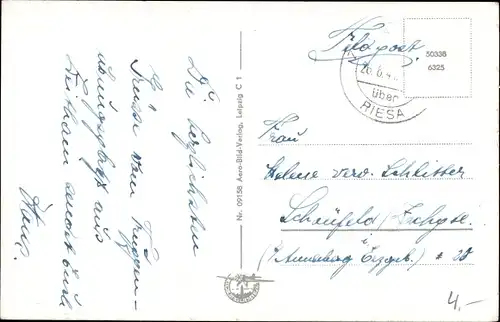 Die herzlichsten
Grüsse vom Truppen-
übungsplatz aus
Nr. 09158 Aero-Bild-Verlag, Leipzig C 1
Feldpost
26.6.4
über
RIESA
50338
6325
Frau
Helene verw. Schlitter
Scheufeld/Zschpse.
Annaberg Erzgeb. 20
4,-